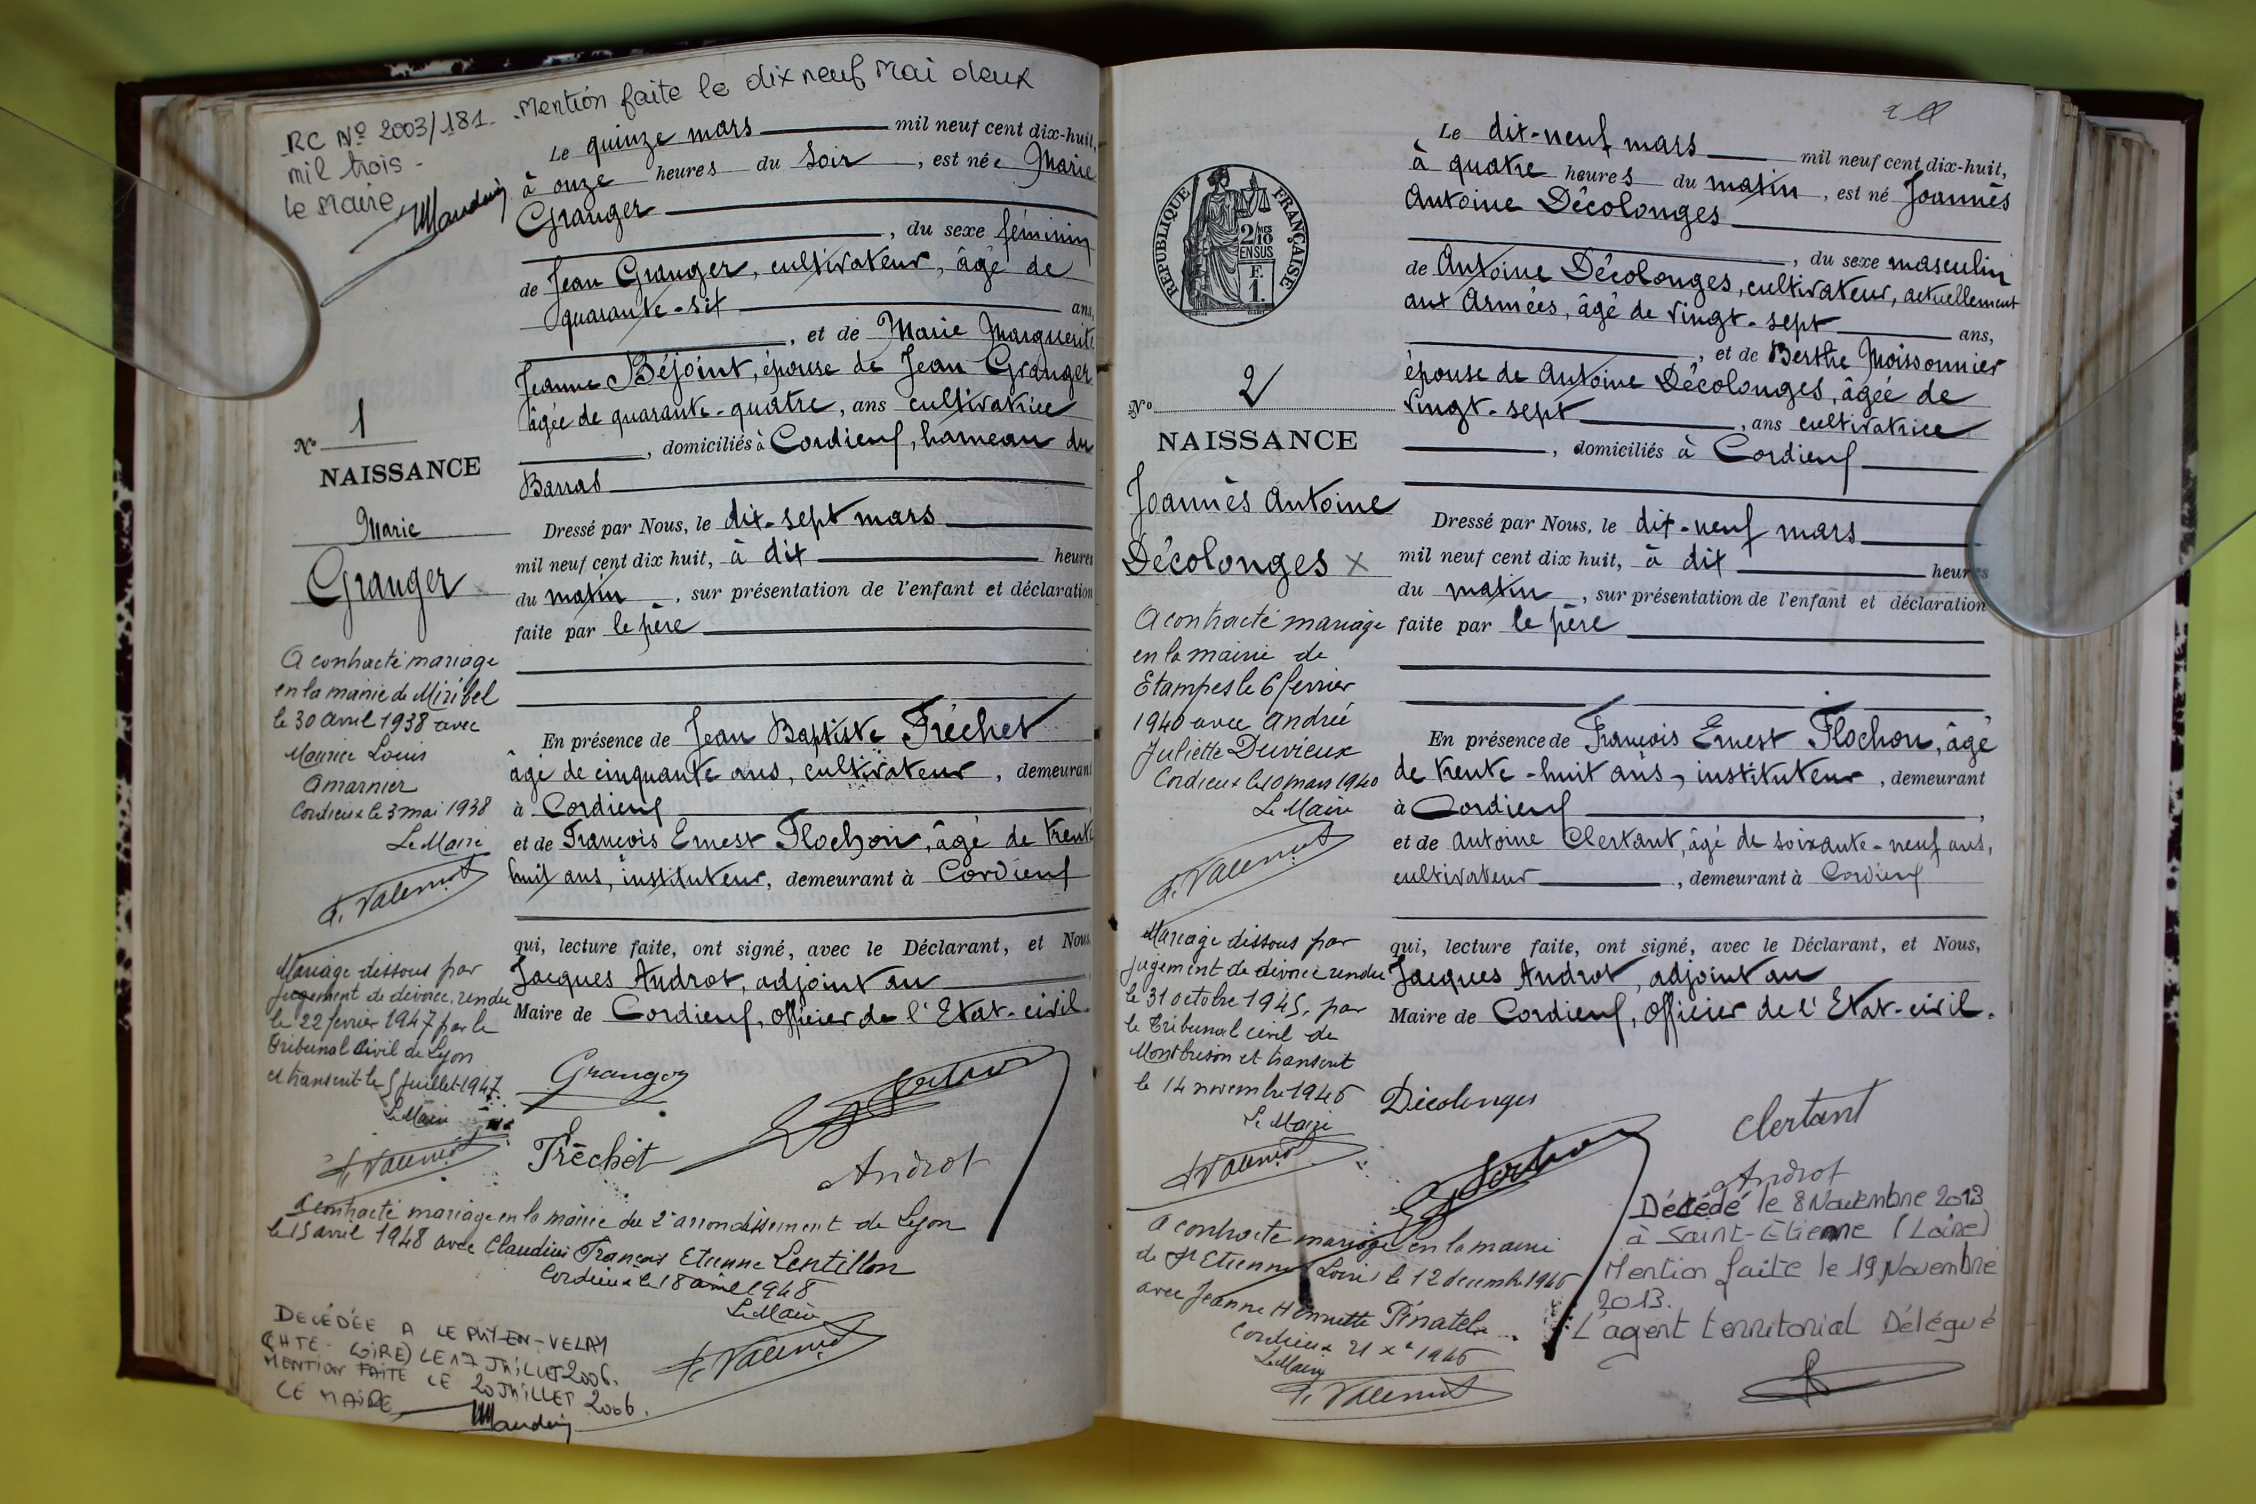 RC N° 2003/181. Mention faite le dix neuf Mai deux
mil trois -
le Maire
Le quinze mars mil neuf cent dix-huit,
à onze heures du soir, est née Marie
Granger
, du sexe féminin
de Jean Granger, cultivateur, âgé de
quarante-six ans,
, et de Marie Marguerite
Jeanne Béjoint, épouse de Jean Granger
âgée de quarante-quatre, ans cultivatrice
, domiciliés à Cordieux, hameau du
Barras
Dressé par Nous, le dix-sept mars
mil neuf cent dix huit, à dix heures
du matin, sur présentation de l'enfant et déclaration
faite par le père
En présence de Jean Baptiste Fréchet
âgé de cinquante ans, cultivateur, demeurant
à Cordieux
et de François Ernest Flochon, âgé de trente
huit ans, instituteur, demeurant à Cordieux
qui, lecture faite, ont signé, avec le Déclarant, et Nous
Jacques Androt, adjoint au
Maire de Cordieux, officier de l'Etat-civil.
Granger
Fréchet
Androt
N° 1
NAISSANCE
Marie
Granger
A contracté mariage
en la mairie de Miribel
le 30 avril 1938 avec
Maurice Louis
Amarnier
Cordieux le 3 mai 1938
Le Maire
Mariage dissous par
jugement de divorce, rendu
le 22 février 1947 par le
Tribunal Civil de Lyon
et transcrit le 5 juillet 1947.
Le Maire
A contracté mariage en la mairie du 2e arrondissement de Lyon
le 15 avril 1948 avec Claudius François Etienne Lentillon
Cordieux le 18 avril 1948
Le Maire
DECÉDÉE A LE PUY-EN-VELAY
(HTE-LOIRE) LE 17 JUILLET 2006.
MENTION FAITE LE 20 JUILLET 2006.
LE MAIRE
2
RÉPUBLIQUE FRANÇAISE
2/10 MES
EN SUS
F.
1.
Le dix-neuf mars mil neuf cent dix-huit,
à quatre heures du matin, est né Joannès
Antoine Décolonges
, du sexe masculin
de Antoine Décolonges, cultivateur, actuellement
aux Armées, âgé de vingt-sept ans,
, et de Berthe Moissonnier
épouse de Antoine Décolonges, âgée de
vingt-sept, ans cultivatrice
, domiciliés à Cordieux
Dressé par Nous, le dix-neuf mars
mil neuf cent dix huit, à dix heures
du matin, sur présentation de l'enfant et déclaration
faite par le père
En présence de François Ernest Flochon, âgé
de trente-huit ans, instituteur, demeurant
à Cordieux,
et de Antoine Clertant, âgé de soixante-neuf ans,
cultivateur, demeurant à Cordieux
qui, lecture faite, ont signé, avec le Déclarant, et Nous,
Jacques Androt, adjoint au
Maire de Cordieux, officier de l'Etat-civil.
Décolonges
Clertant
Androt
N° 2
NAISSANCE
Joannès Antoine
Décolonges x
A contracté mariage
en la mairie de
Etampes le 6 février
1940 avec Andrée
Juliette Duvieux
Cordieux le 10 mars 1940
Le Maire
Mariage dissous par
jugement de divorce rendu
le 31 octobre 1945, par
le Tribunal civil de
Montbrison et transcrit
le 14 novembre 1946
Le Maire
A contracté mariage en la mairie
de St Etienne (Loire) le 12 décembre 1946
avec Jeanne Henriette Pinatel
Cordieux 21 Xe 1946
Le Maire
Décédé le 8 Novembre 2013
à Saint-Etienne (Loire)
Mention faite le 19 Novembre
2013.
L'agent territorial Délégué